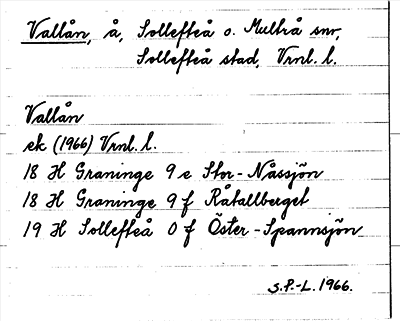 Vallån, å, Sollefteå o. Multrå snr,
Sollefteå stad, Vrnl. l.
Vallån
ek (1966) Vrnl. l.
18 H Graninge 9 e Stor-Nässjön
18 H Graninge 9 f Råtallberget
19 H Sollefteå 0 f Öster-Spannsjön
S.P.-L. 1966.